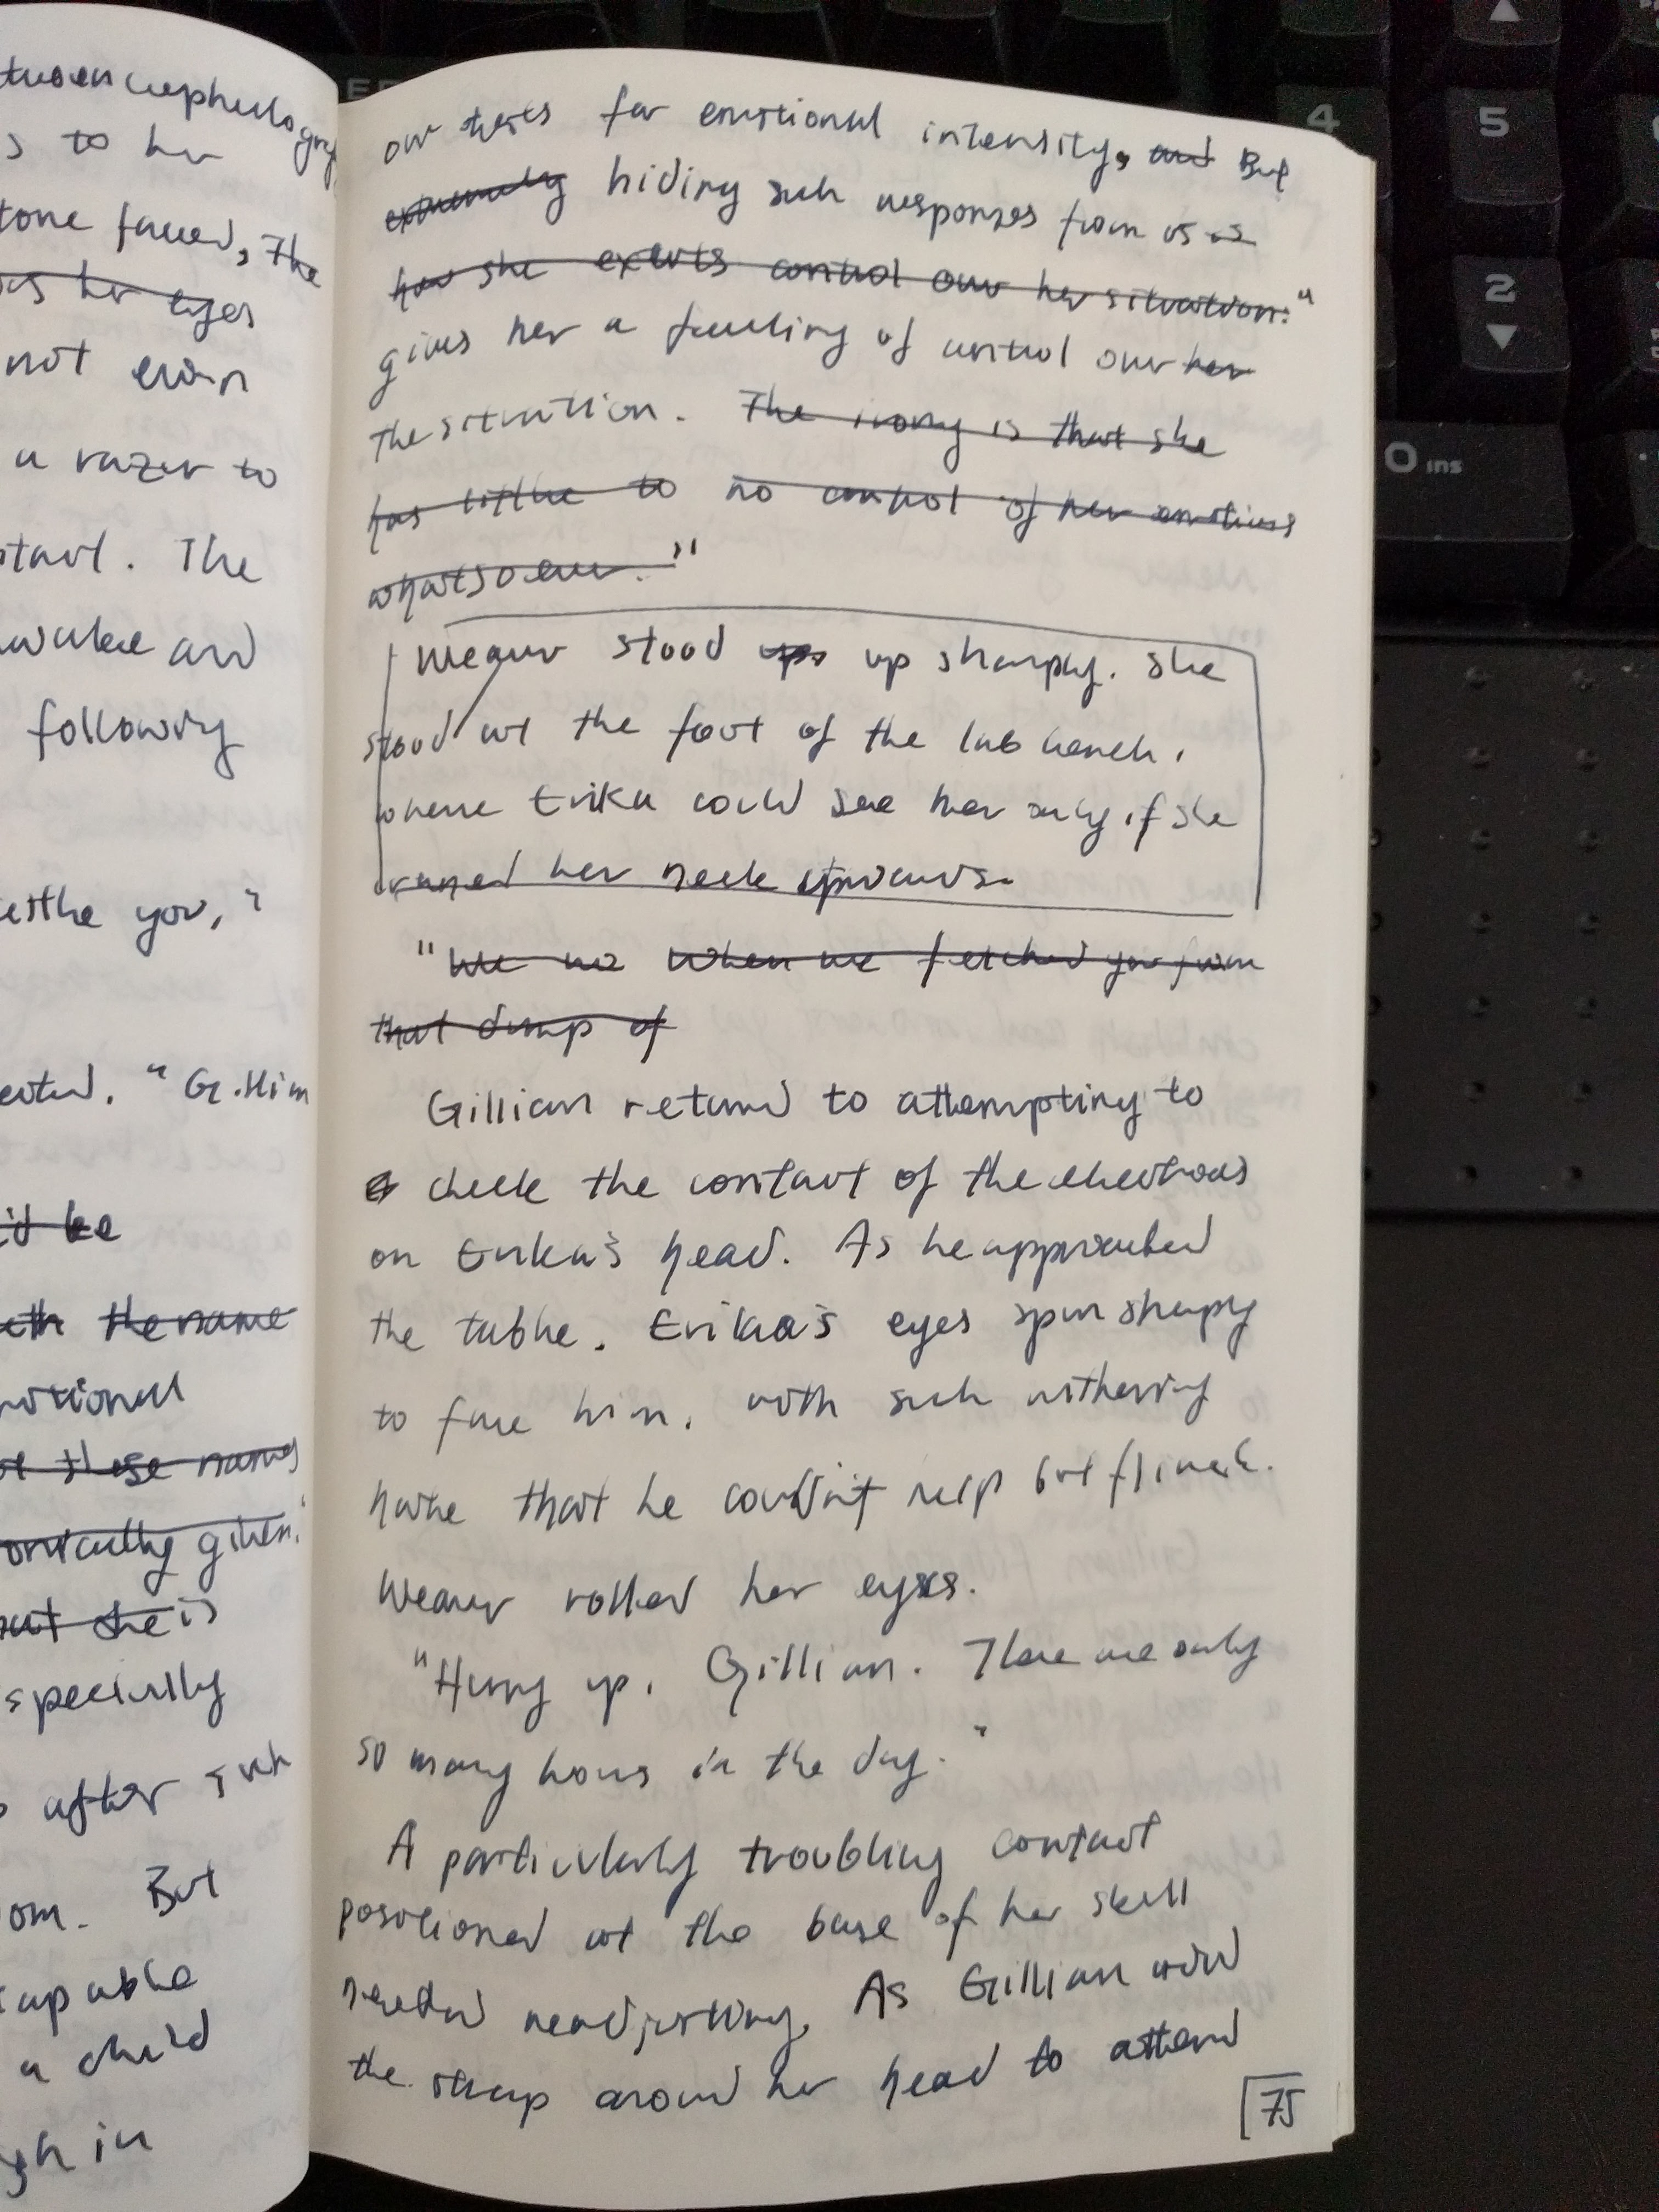 to her
tone faced, The
as her eyes
not even
a razer to
start. The
awake and
following
you,"
"G. Him
i'd be
the name
emotional
these names
given."
but she is
specially
after such
om. But
capable
a child
in
our tests for emotional intensity, and But
extremely hiding such responses from us is
how she exerts control over her situation."
gives her a feeling of control over her
the situation. The irony is that she
has little to no control of her emotions
whatsoever."
Weaver stood up sharply. She
stood at the foot of the lab bench,
where Erika could see her only if she
craned her neck upwards.
"We no When we fetched you from
that dump of
Gillian returned to attempting to
check the contact of the electrodes
on Erika's head. As he approached
the table, Erika's eyes spun sharply
to face him, with such withering
hate that he couldn't help but flinch.
Weaver rolled her eyes.
"Hurry up, Gillian. There are only
so many hours in the day."
A particularly troubling contact
positioned at the base of her skull
needed readjusting. As Gillian
the strap around her head to attend
75
4
5
2
0 ins